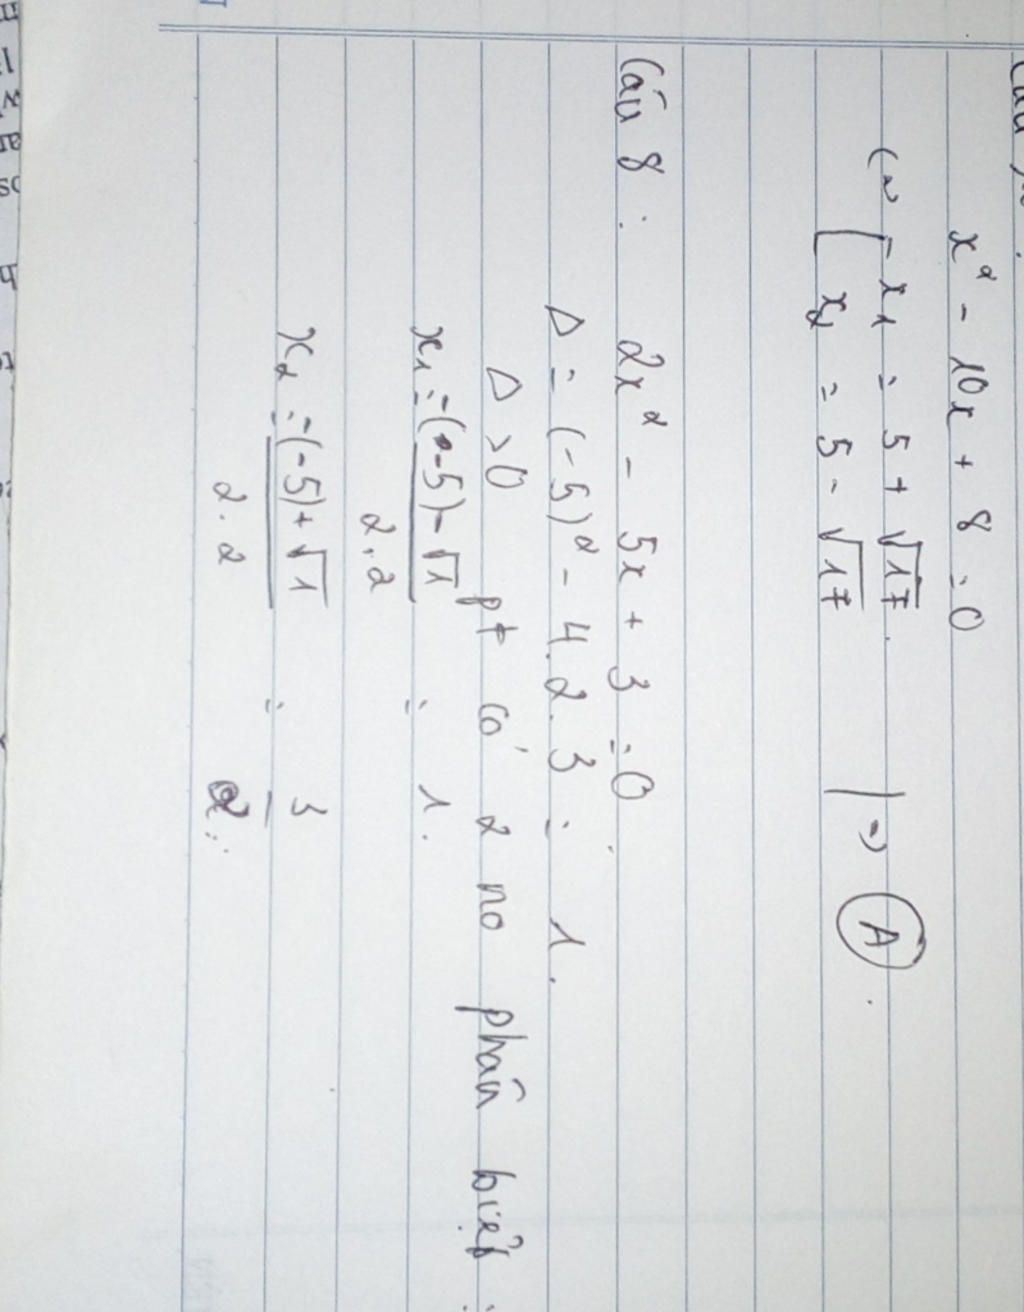 x² - 10x + 8 = 0
x₁ = 5 + √17.
x₂ = 5 - √17 | => A.
Câu 8 : 2x² - 5x + 3 = 0
Δ = (-5)² - 4.2.3 = 1.
Δ > 0 pt có 2 no phân biệt :
x₁ = -(-5) - √1 / 2.2 = 1.
x₂ = -(-5) + √1 / 2.2 = 3 / 2.